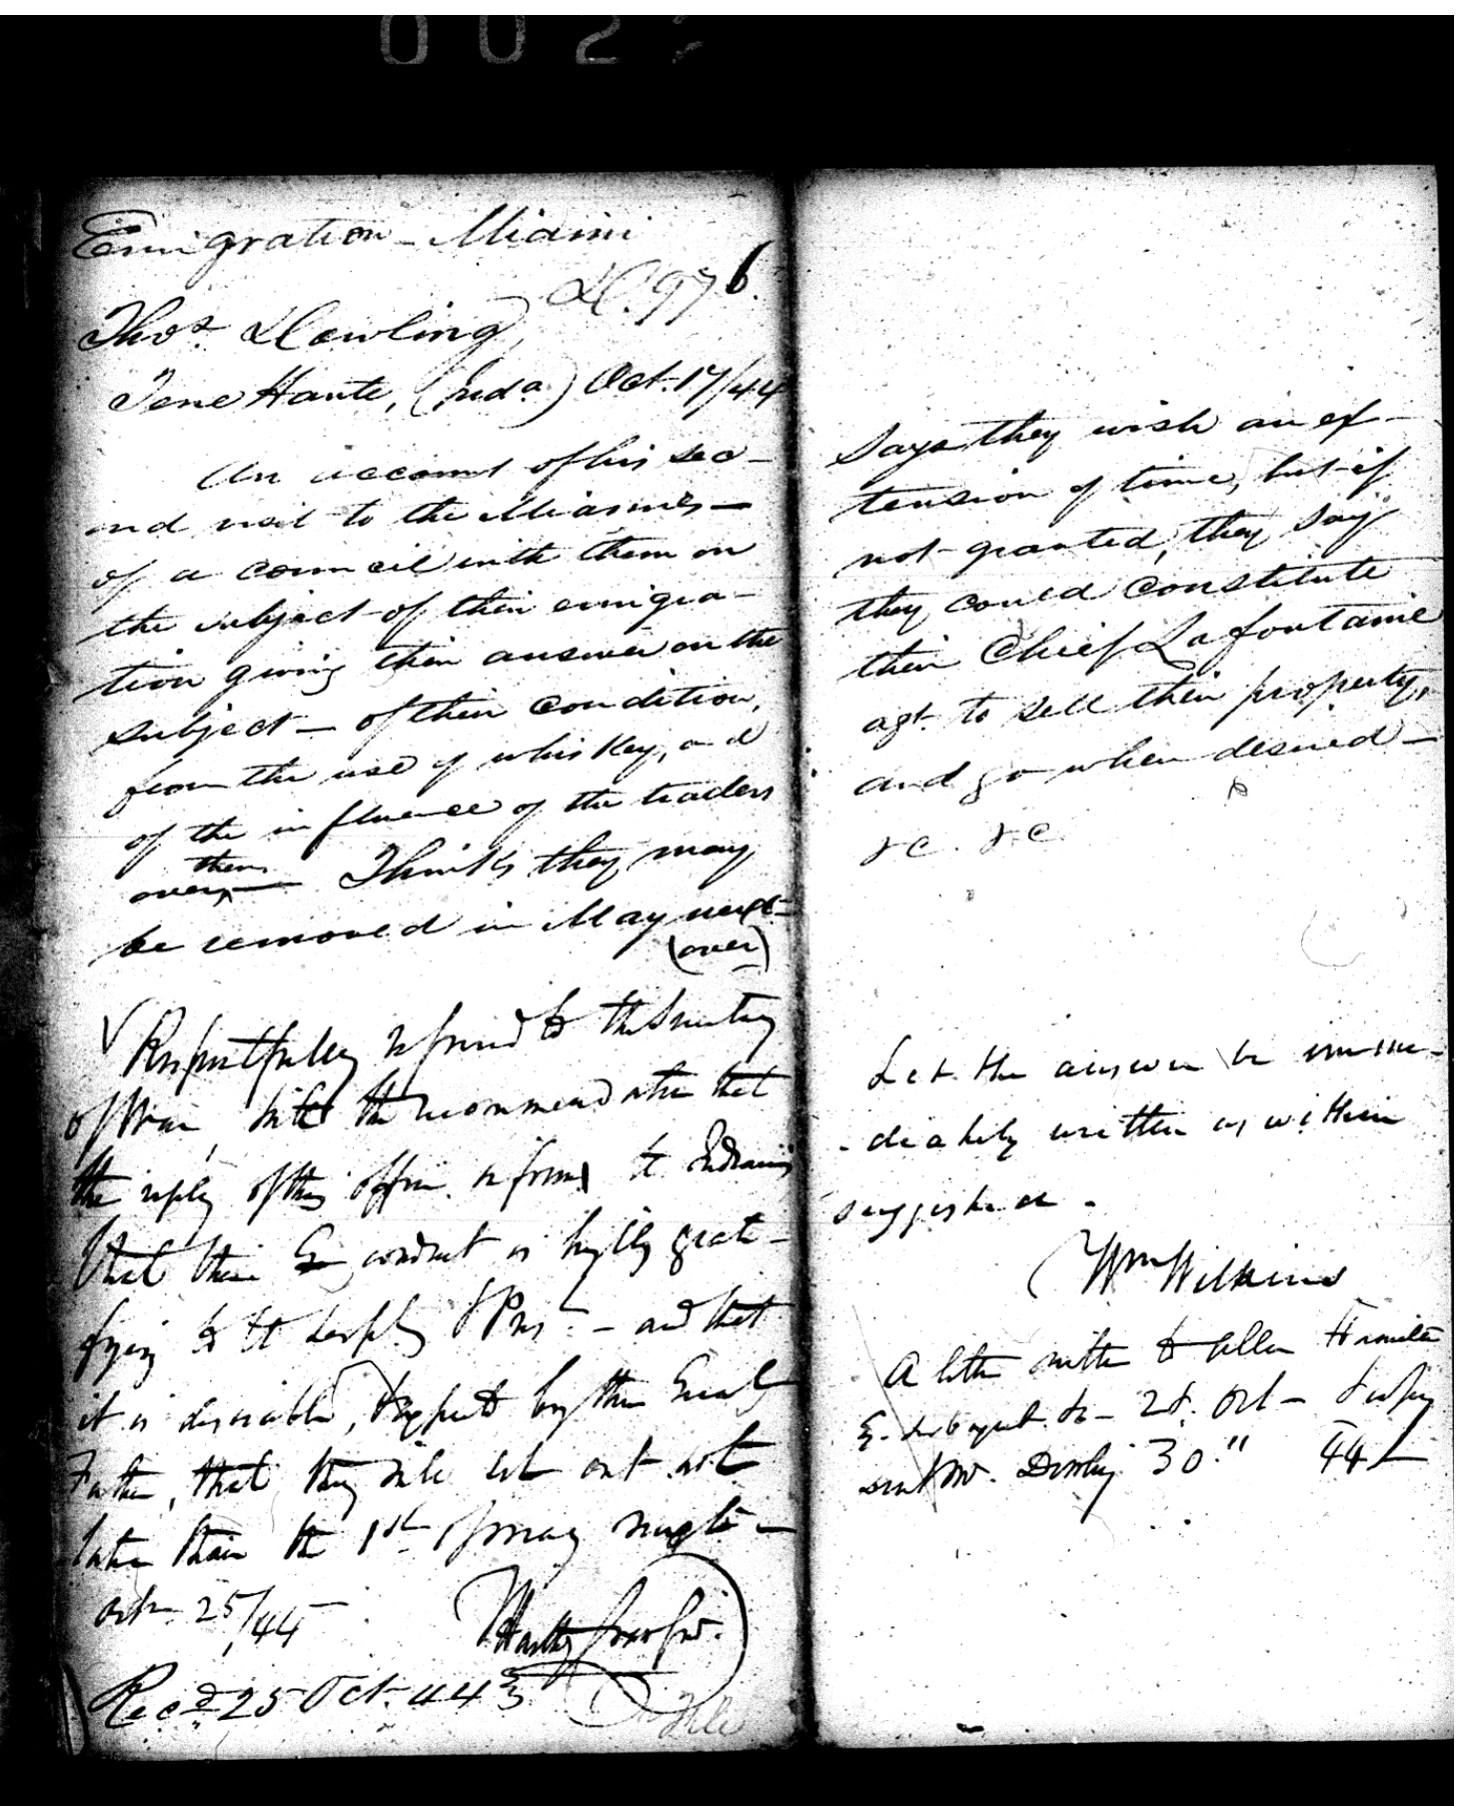 002
Emigration - Miami
D. 976.
Thos. Dowling,
Terre Haute, (Inda.) Oct. 17/44
An account of his sec-
ond visit to the Miamies -
of a council with them on
the subject of their emigra-
tion giving their answer on the
subject - of their condition,
from the use of whiskey, and
of the influence of the traders
over them - Thinks they may
be removed in May next -
(over)
Respectfully referred to the Secretary
of War, with the recommendation that
the reply of this office inform the Indians
that their conduct is highly grati-
fying to the &
Prest. - and that
it is desirable, & expected by their Great
Father, that they will set out not
later than the 1st of May next -
Oct. 25/44
T Hartley Crawford.
Recd 25 Oct. 44
File
Says they wish an ex-
tension of time, but if
not granted, they say
they could constitute
their Chief Lafontaine
agt. to sell their property,
and go when desired -
&c. &c.
Let the answer be imme-
- diately written as within
suggested.
Wm Wilkins
A letter written to Allen Hamilton
28. Oct -
sent Mr. Dowling 30." 44